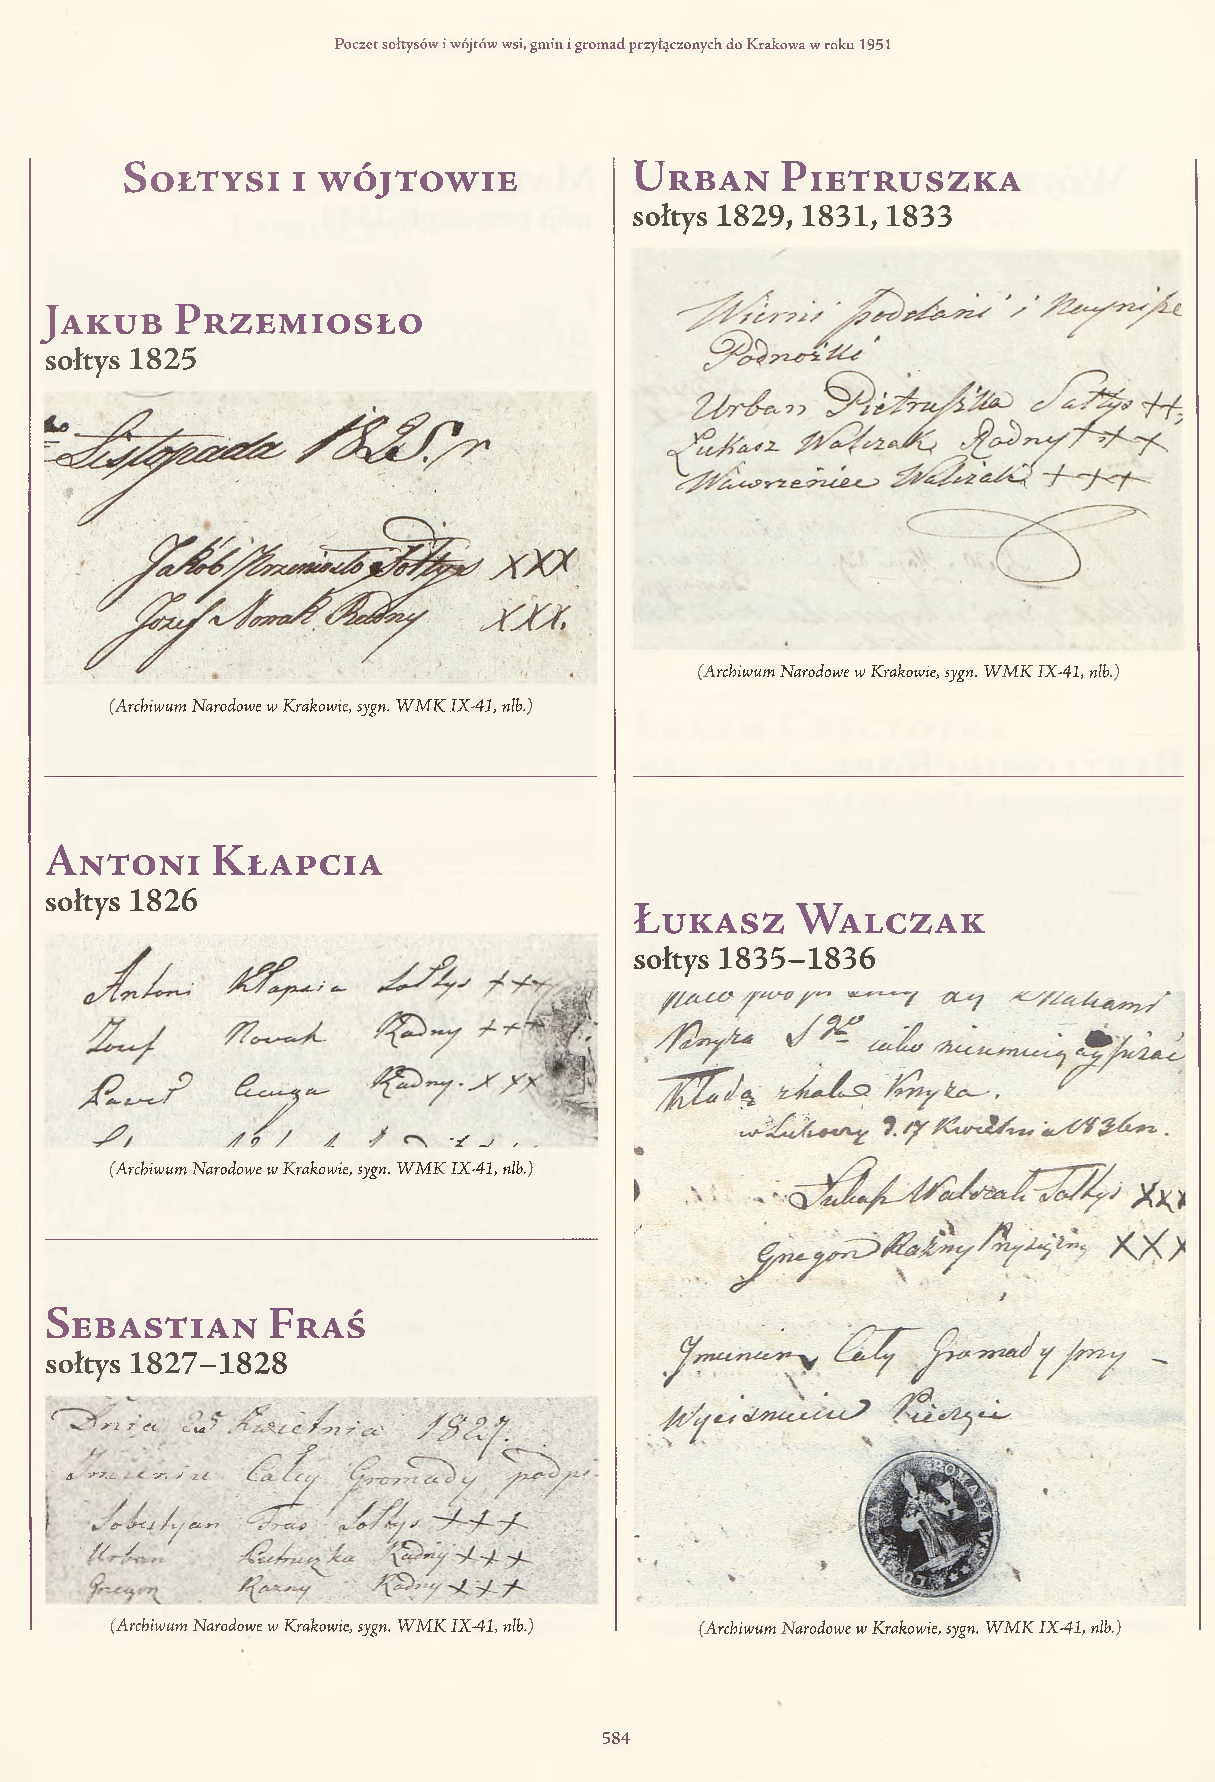 Poczet sołtysów i wójtów wsi, gmin i gromad przyłączonych do Krakowa w roku 1951
Sołtysi i wójtowie
Jakub Przemiosło
sołtys 1825
Listopada 1825. r
Jakób Przemiosło Sołtys XXX
Jozef Nowak Radny XXX.
(Archiwum Narodowe w Krakowie, sygn. WMK IX-41, nlb.)
Antoni Kłapcia
sołtys 1826
Antoni Kłapcia Sołtys +++
Jozef Nowak Radny +++
Paweł Radny. XXX
(Archiwum Narodowe w Krakowie, sygn. WMK IX-41, nlb.)
Sebastian Fraś
sołtys 1827–1828
Dnia 25 Kwietnia 1827.
Imieniu Całey Gromady podpi
Sobestyan Fras Sołtys +++
Urban Pietruszka Radny +++
Gregon Razny Radny +++
(Archiwum Narodowe w Krakowie, sygn. WMK IX-41, nlb.)
Urban Pietruszka
sołtys 1829, 1831, 1833
Wierni poddani i Nayniżse
Podnożki
Urban Pietruszka Sałtys ++
Łukasz Walczak Radny +++
Wawrzeniec Walczak +++
(Archiwum Narodowe w Krakowie, sygn. WMK IX-41, nlb.)
Łukasz Walczak
sołtys 1835–1836
iako nieumieiący pisać
Kładą znaki Krzyża.
d. 17 Kwietnia 1836.
Łukasz Walczak Sołtys XXX
Gregon Razny Przysiężny XXX
Imieniem Cały Gromady przy –
Wycisnieniu Pieczęci
GROMADA
(Archiwum Narodowe w Krakowie, sygn. WMK IX-41, nlb.)
584